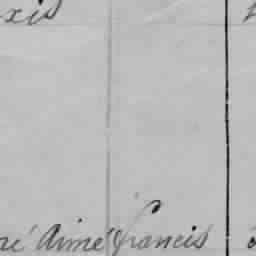 xis
ré Aimé francis